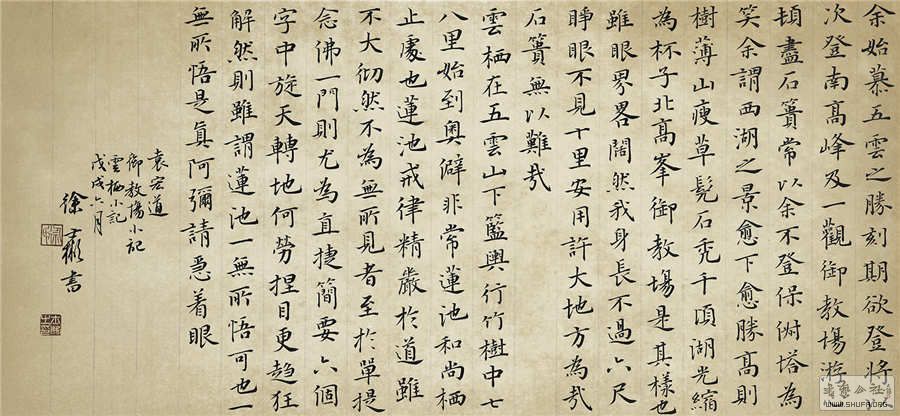 余始慕五雲之勝刻期欲登將
次登南高峰及一觀御教場游
頓盡石簣常以余不登保俶塔為
笑余謂西湖之景愈下愈勝高則
樹薄山瘦草髡石禿千頃湖光縮
為杯子北高峯御教場是其樣也
雖眼界畧闊然我身長不過六尺
睜眼不見十里安用許大地方為哉
石簣無以難哉
雲栖在五雲山下籃輿行竹樹中七
八里始到奧僻非常蓮池和尚栖
止處也蓮池戒律精嚴於道雖
不大彻然不為無所見者至於單提
念佛一門則尤為直捷簡要六個
字中旋天轉地何勞捏目更趋狂
解然則雖謂蓮池一無所悟可也一
無所悟是眞阿彌請急着眼
袁宏道
御教場小記
雲栖小記
戊戌六月
徐 書
WWW.SHUFA.ORG